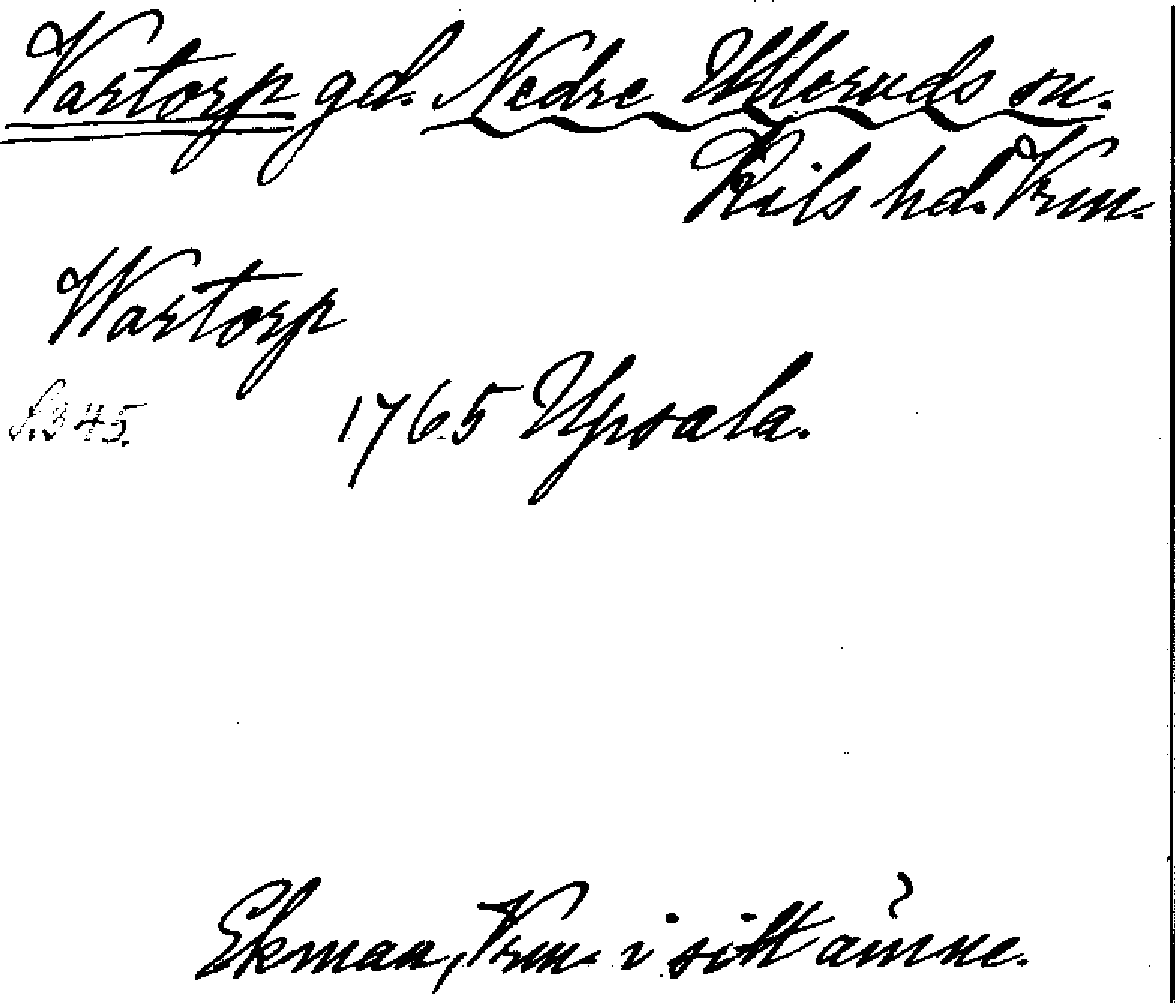 Vartorp gd. Nedre Ulleruds sn.
Kils hd. Vrm.
Wartorp
s. 345. 1765 Upsala.
Ekman, Vrm. i sitt ämne.